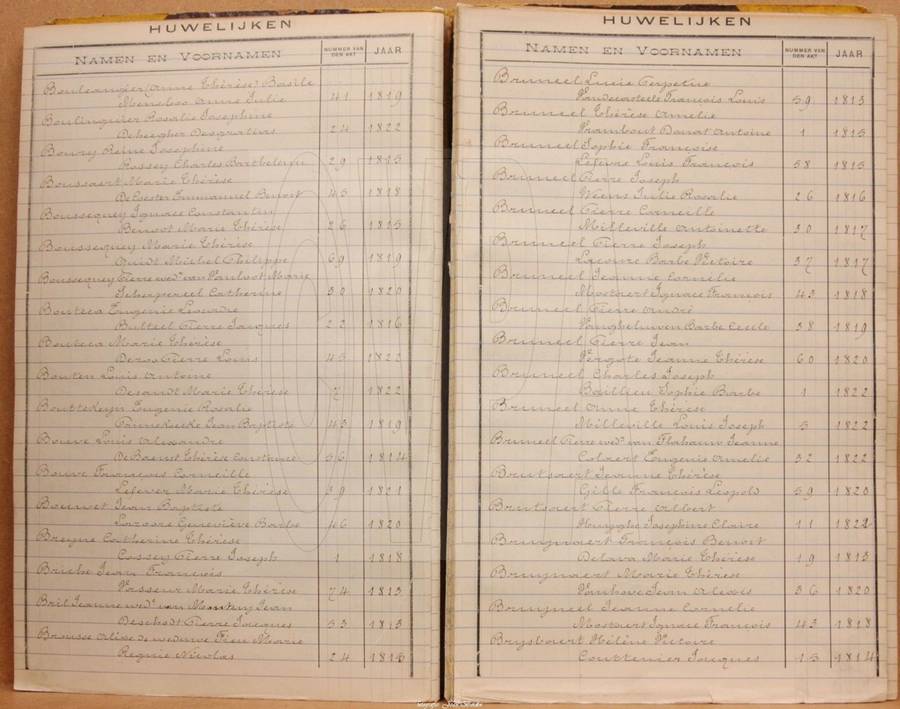 HUWELIJKEN
NAMEN EN VOORNAMEN NUMMER VAN DEN AKT JAAR
Boulranger (Anne Thérèse) Basile
Anne Julie 41 1819
Boulinguier Rosalie Josephine
Deheegher Desgratias 24 1822
Boury Reine Josephine
Rossey Charles Barthelemy 29 1815
Boussaert Marie Thérèse
De Coester Emmanuel Benoit 45 1818
Boussequey Ignace Constantin
Benoot Marie Thérèse 26 1815
Boussequey Marie Thérèse
Michel Philippe 69 1819
Boussequey Pierre wedr van Marie
Scherpereel Catherine 30 1820
Bouteca Eugenie
Bulteel Pierre Jacques 22 1816
Bouteca Marie Thérèse
Pierre Louis 45 1822
Bouten Louis Antoine
Marie Thérèse 7 1822
Eugenie Rosalie
Jean Baptiste 43 1819
Bouve Louis Alexandre
De Baenst Thérèse Constance 56 1814
Bouve François Corneille
Lefever Marie Thérèse 39 1821
Bouwet Jean Baptiste
Geneviève Barbe 46 1820
Breyne Catherine Thérèse
Cossey Pierre Joseph 1 1818
Briche Jean François
Vasseur Marie Thérèse 74 1813
Bril Jeanne wede van Jean
Deschodt Pierre Jacques 53 1813
Marie
Nicolas 24 1816
HUWELIJKEN
NAMEN EN VOORNAMEN NUMMER VAN DEN AKT JAAR
Bruneel Lucie Perpetue
Vandecasteele François Louis 59 1813
Bruneel Thérèse Amelie
Donat Antoine 1 1815
Bruneel Sophie Françoise
Lefevre Louis François 58 1815
Bruneel Pierre Joseph
Weens Julie Rosalie 26 1816
Bruneel Pierre Corneille
Milleville Antoinette 30 1817
Bruneel Pierre Joseph
Barbe Victoire 37 1817
Bruneel Jeanne Cornelie
Mostaert Ignace François 43 1818
Bruneel Pierre André
Vangheluwen Barbe Cecile 38 1819
Bruneel Pierre Jean
Vergote Jeanne Thérèse 60 1820
Bruneel Charles Joseph
Bailleu Sophie Barbe 1 1822
Bruneel Anne Thérèse
Milleville Louis Joseph 5 1822
Bruneel Pierre wedr van Jeanne
Colaert Eugenie Amelie 32 1822
Brutsaert Jeanne Thérèse
Gille François Léopold 59 1820
Brutsaert Pierre Albert
Huyghe Josephine Claire 11 1822
Bruynaert François Benoit
Delava Marie Thérèse 19 1813
Bruynaert Marie Thérèse
Vanhove Jean Alexis 36 1820
Bruyneel Jeanne Cornelie
Mostaert Ignace François 43 1818
Brysbaert Hélène Victoire
Couttenier Jacques 15 1814